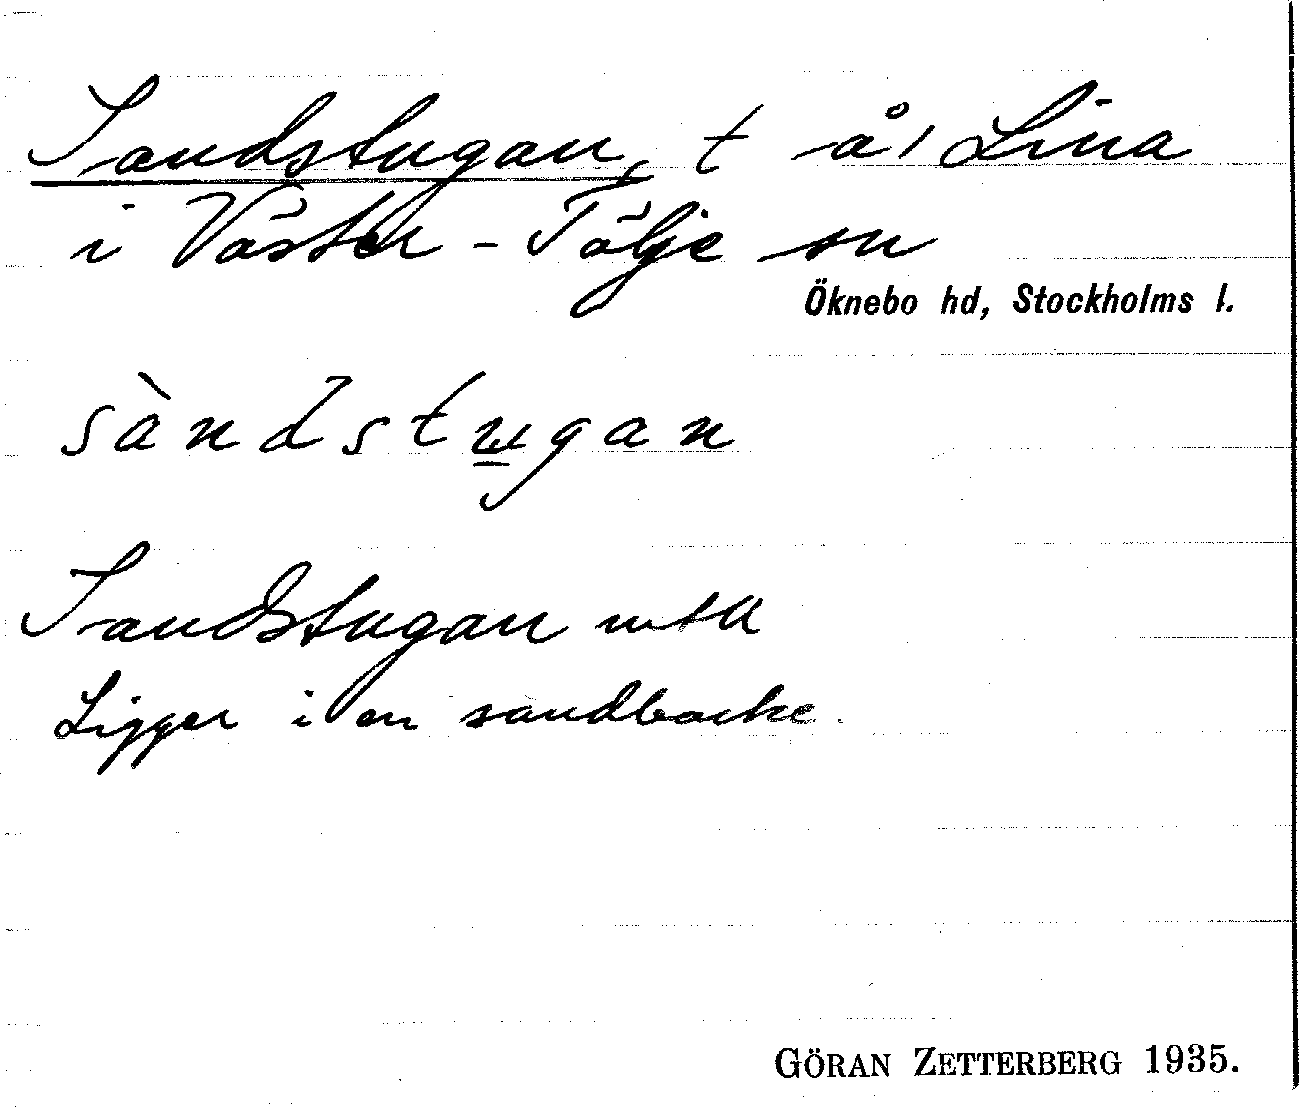 Sandstugan, t å / Lina
i Väster-Tälje sn
Öknebo hd, Stockholms l.
sàndstu̲gan
Sandstugan mtll
Ligger i en sandbacke.
GÖRAN ZETTERBERG 1935.